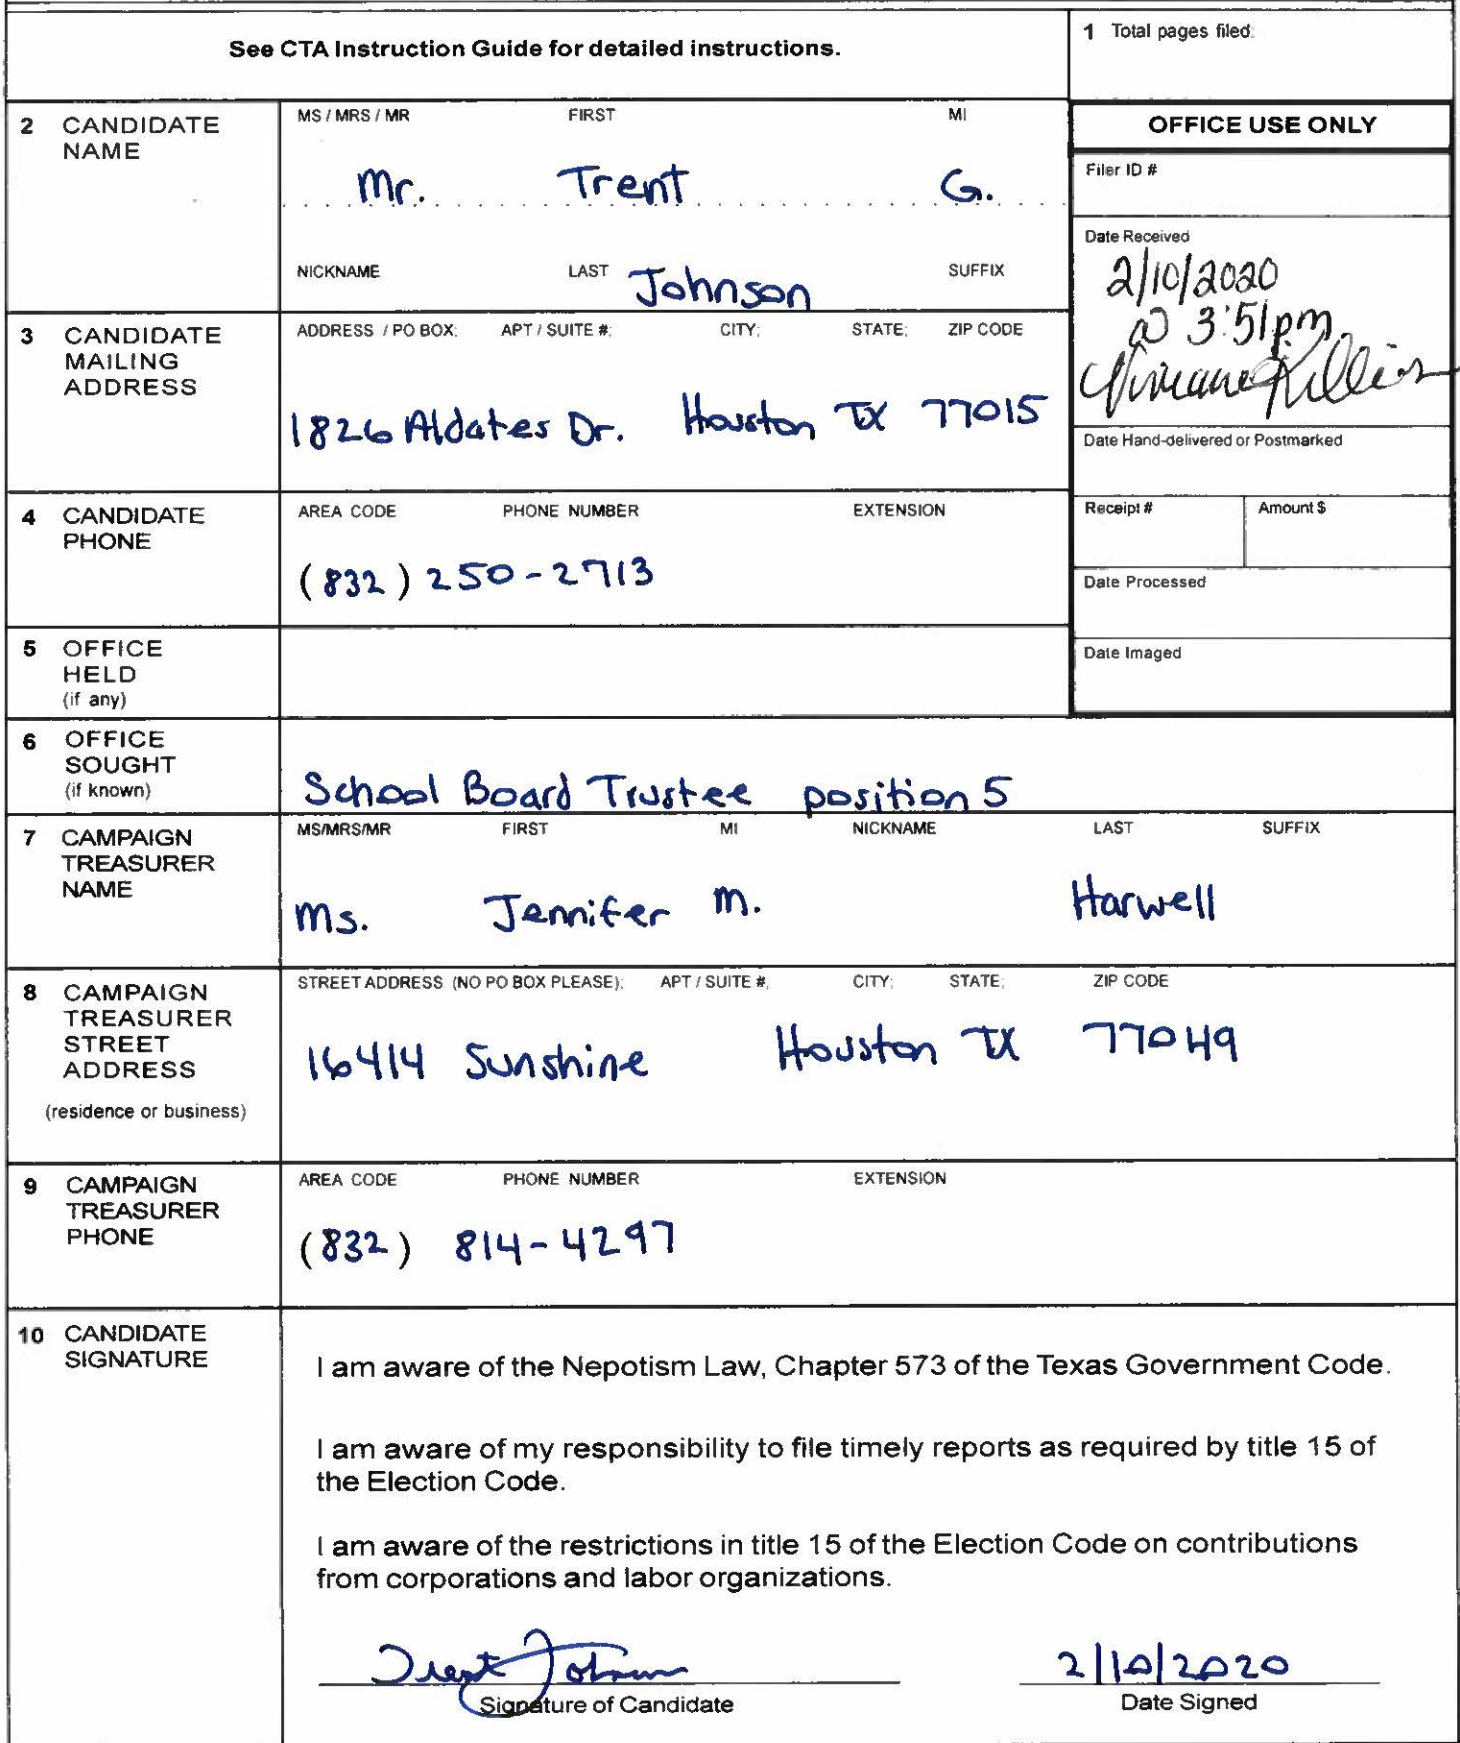 See CTA Instruction Guide for detailed instructions.
1 Total pages filed:
2 CANDIDATE NAME
MS / MRS / MR FIRST MI
Mr. Trent G.
NICKNAME LAST SUFFIX
Johnson
OFFICE USE ONLY
Filer ID #
Date Received
2/10/2020
@ 3:51pm.
Date Hand-delivered or Postmarked
Receipt # Amount $
Date Processed
Date Imaged
3 CANDIDATE MAILING ADDRESS
ADDRESS / PO BOX; APT / SUITE #; CITY; STATE; ZIP CODE
1826 Aldates Dr. Houston TX 77015
4 CANDIDATE PHONE
AREA CODE PHONE NUMBER EXTENSION
(832) 250-2713
5 OFFICE HELD
(if any)
6 OFFICE SOUGHT
(if known)
School Board Trustee position 5
7 CAMPAIGN TREASURER NAME
MS/MRS/MR FIRST MI NICKNAME LAST SUFFIX
Ms. Jennifer M. Harwell
8 CAMPAIGN TREASURER STREET ADDRESS
(residence or business)
STREET ADDRESS (NO PO BOX PLEASE); APT / SUITE #; CITY; STATE; ZIP CODE
16414 Sunshine Houston TX 77049
9 CAMPAIGN TREASURER PHONE
AREA CODE PHONE NUMBER EXTENSION
(832) 814-4297
10 CANDIDATE SIGNATURE
I am aware of the Nepotism Law, Chapter 573 of the Texas Government Code.
I am aware of my responsibility to file timely reports as required by title 15 of
the Election Code.
I am aware of the restrictions in title 15 of the Election Code on contributions
from corporations and labor organizations.
Trent Johnson 2/10/2020
Signature of Candidate Date Signed